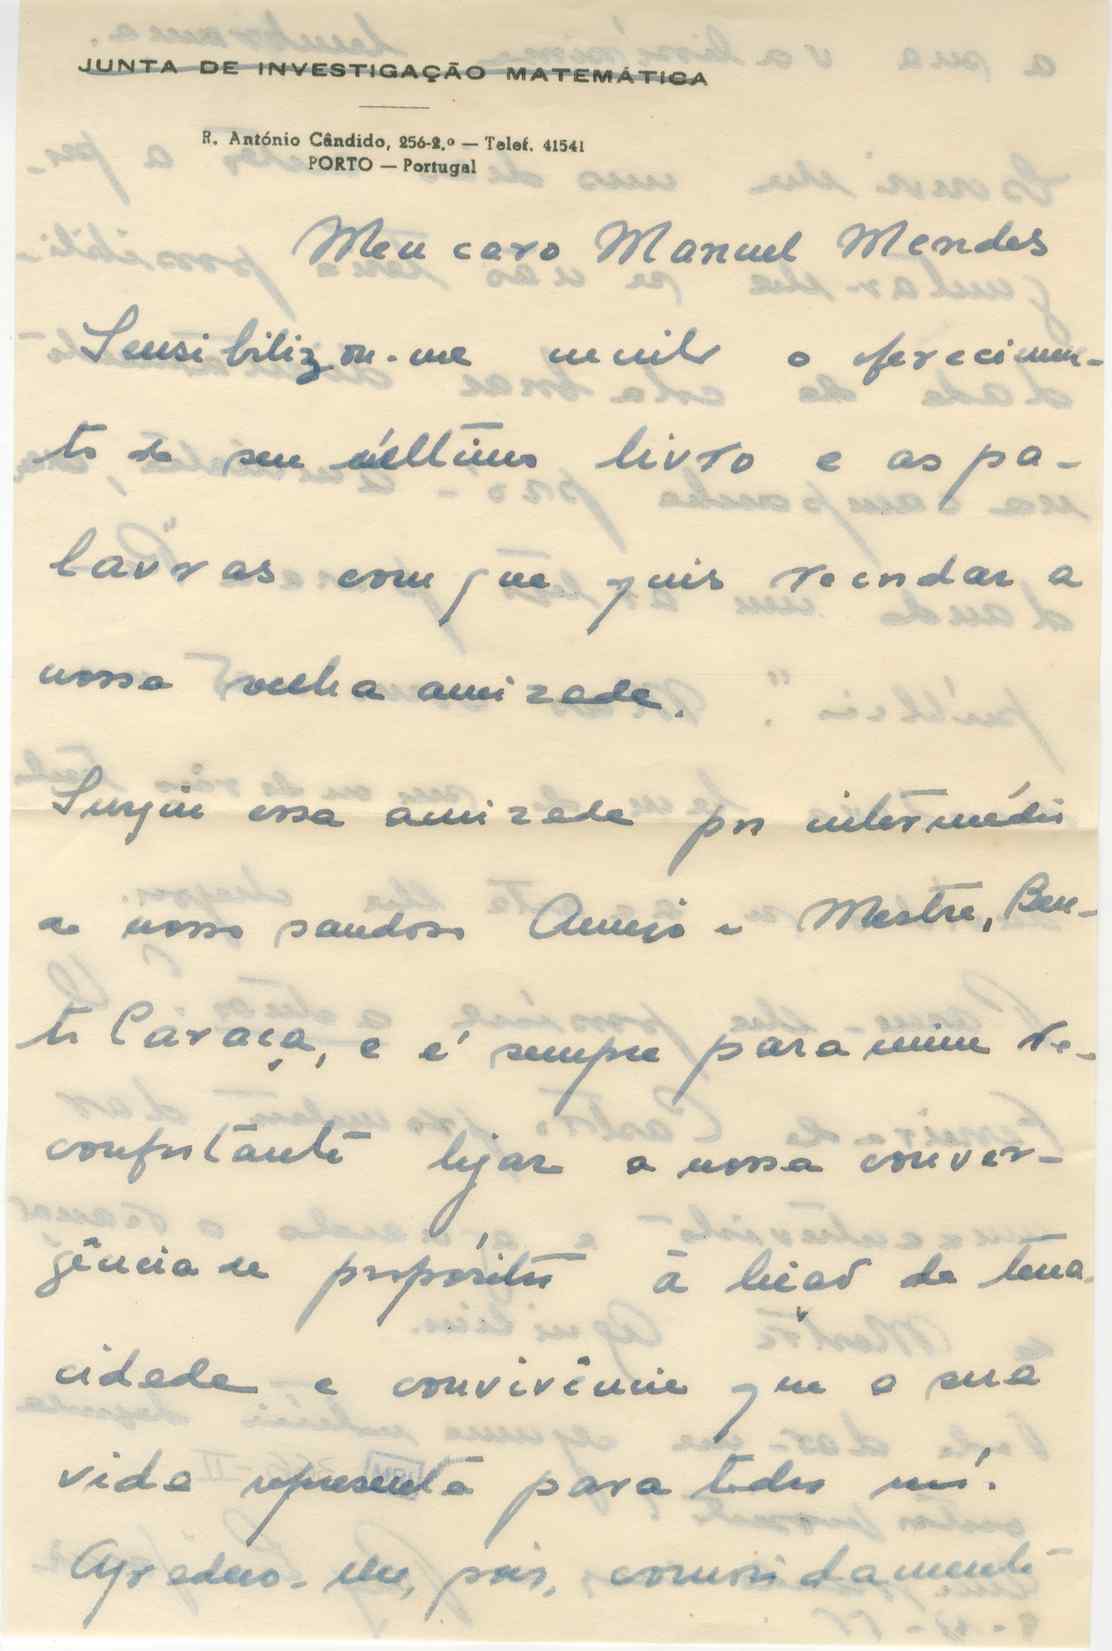 JUNTA DE INVESTIGAÇÃO MATEMÁTICA
R. António Cândido, 256-2.º — Telef. 41541
PORTO — Portugal
Meu caro Manuel Mendes
Sensibilizou-me muito o oferecimen-
to do seu último livro e as pa-
lavras com que quis recordar a
nossa velha amizade.
Surgiu essa amizade por intermédio
do nosso saudoso Amigo e Mestre, Ben-
to Caraça, e é sempre para mim re-
confortante ligar a nossa conver-
gência de propósitos à lição de tena-
cidade e convivência que a sua
vida representa para todos nós.
Agradeço-lhe, pois, comovidamente